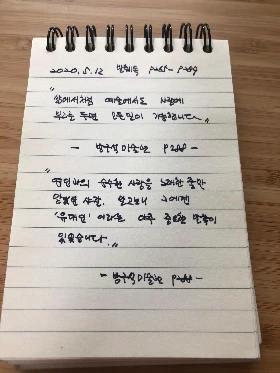 2020.5.12
"
삶에서처럼 예술에서도 사랑에
뿌리를 두면 모든 일이 가능합니다."
- 방구석 미술관 P288 -
"
연인과의 순수한 사랑을 노래한 줄만
알았던 샤갈. 알고보니 그에겐
'유대인' 이라는 아주 중요한 맥락이
있었습니다."
- 방구석 미술관 P288 -